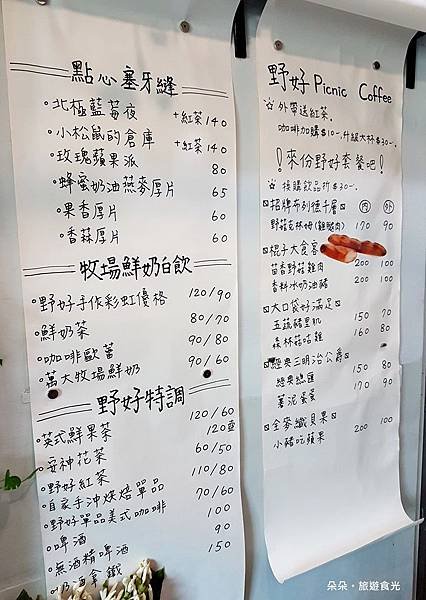 點心塞牙縫
。北極藍莓夜 +紅茶140
。小松鼠的倉庫 +紅茶140
。玫瑰蘋果派 80
。蜂蜜奶油燕麥厚片 65
。果香厚片 60
。香蒜厚片 60
牧場鮮奶日飲
。野好手作彩虹優格 120/90
。鮮奶茶 80/70
。咖啡歐蕾 90/80
。萬大牧場鮮奶 90/60
野好特調
。英式鮮果茶 120/60
。安神花茶 120壺
。野好紅茶 60/50
。自家手沖烘焙單品 110/80
。野好單品美式咖啡 70/60
。啤酒 100
。無酒精啤酒 90
。奶酒拿鐵 150
野好 Picnic Coffee
☆外帶送紅茶,
咖啡加購$10-,升級大杯$30-.
!來份野好套餐吧!
☆換購飲品折$30-.
招牌布列德千層 內 外
野菇克林姆(雞豬肉) 170 90
棍子大食客
茴香野菇雞肉 200 100
香料冰奶油豬 200 100
大口袋好滿足
五蔬豬里肌 150 70
森林菇菇雞 160 80
經典三明治公爵
經典總匯 150 80
薯泥蛋蛋 170 90
全麥纖貝果
小豬吃蘋果 200 100
朵朵。旅遊食光